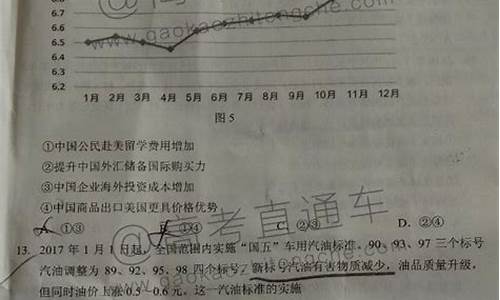 6.8
6.7
6.6
6.5
6.4
6.3
6.2
1月 2月 3月 4月 5月 6月 7月 8月 9月 10月 11月 12月
图 5
www.gaokaozhitongche.com
①中国公民赴美留学费用增加
②提升中国外汇储备国际购买力
③中国企业海外投资成本增加
④中国商品出口美国更具价格优势
@高考直通车
A. ①③ ①④ C. ②③ D. ②④
13. 2017 年 1 月 1 日起，全国范围内实施“国五”车用汽油标准。90、93、97 三个标号
汽油调整为 89、92、95、98 四个标号，新标号汽油有害物质减少，油品质量升级，
但同时油价上涨 0.5—0.6 元。这一汽油标准的实施